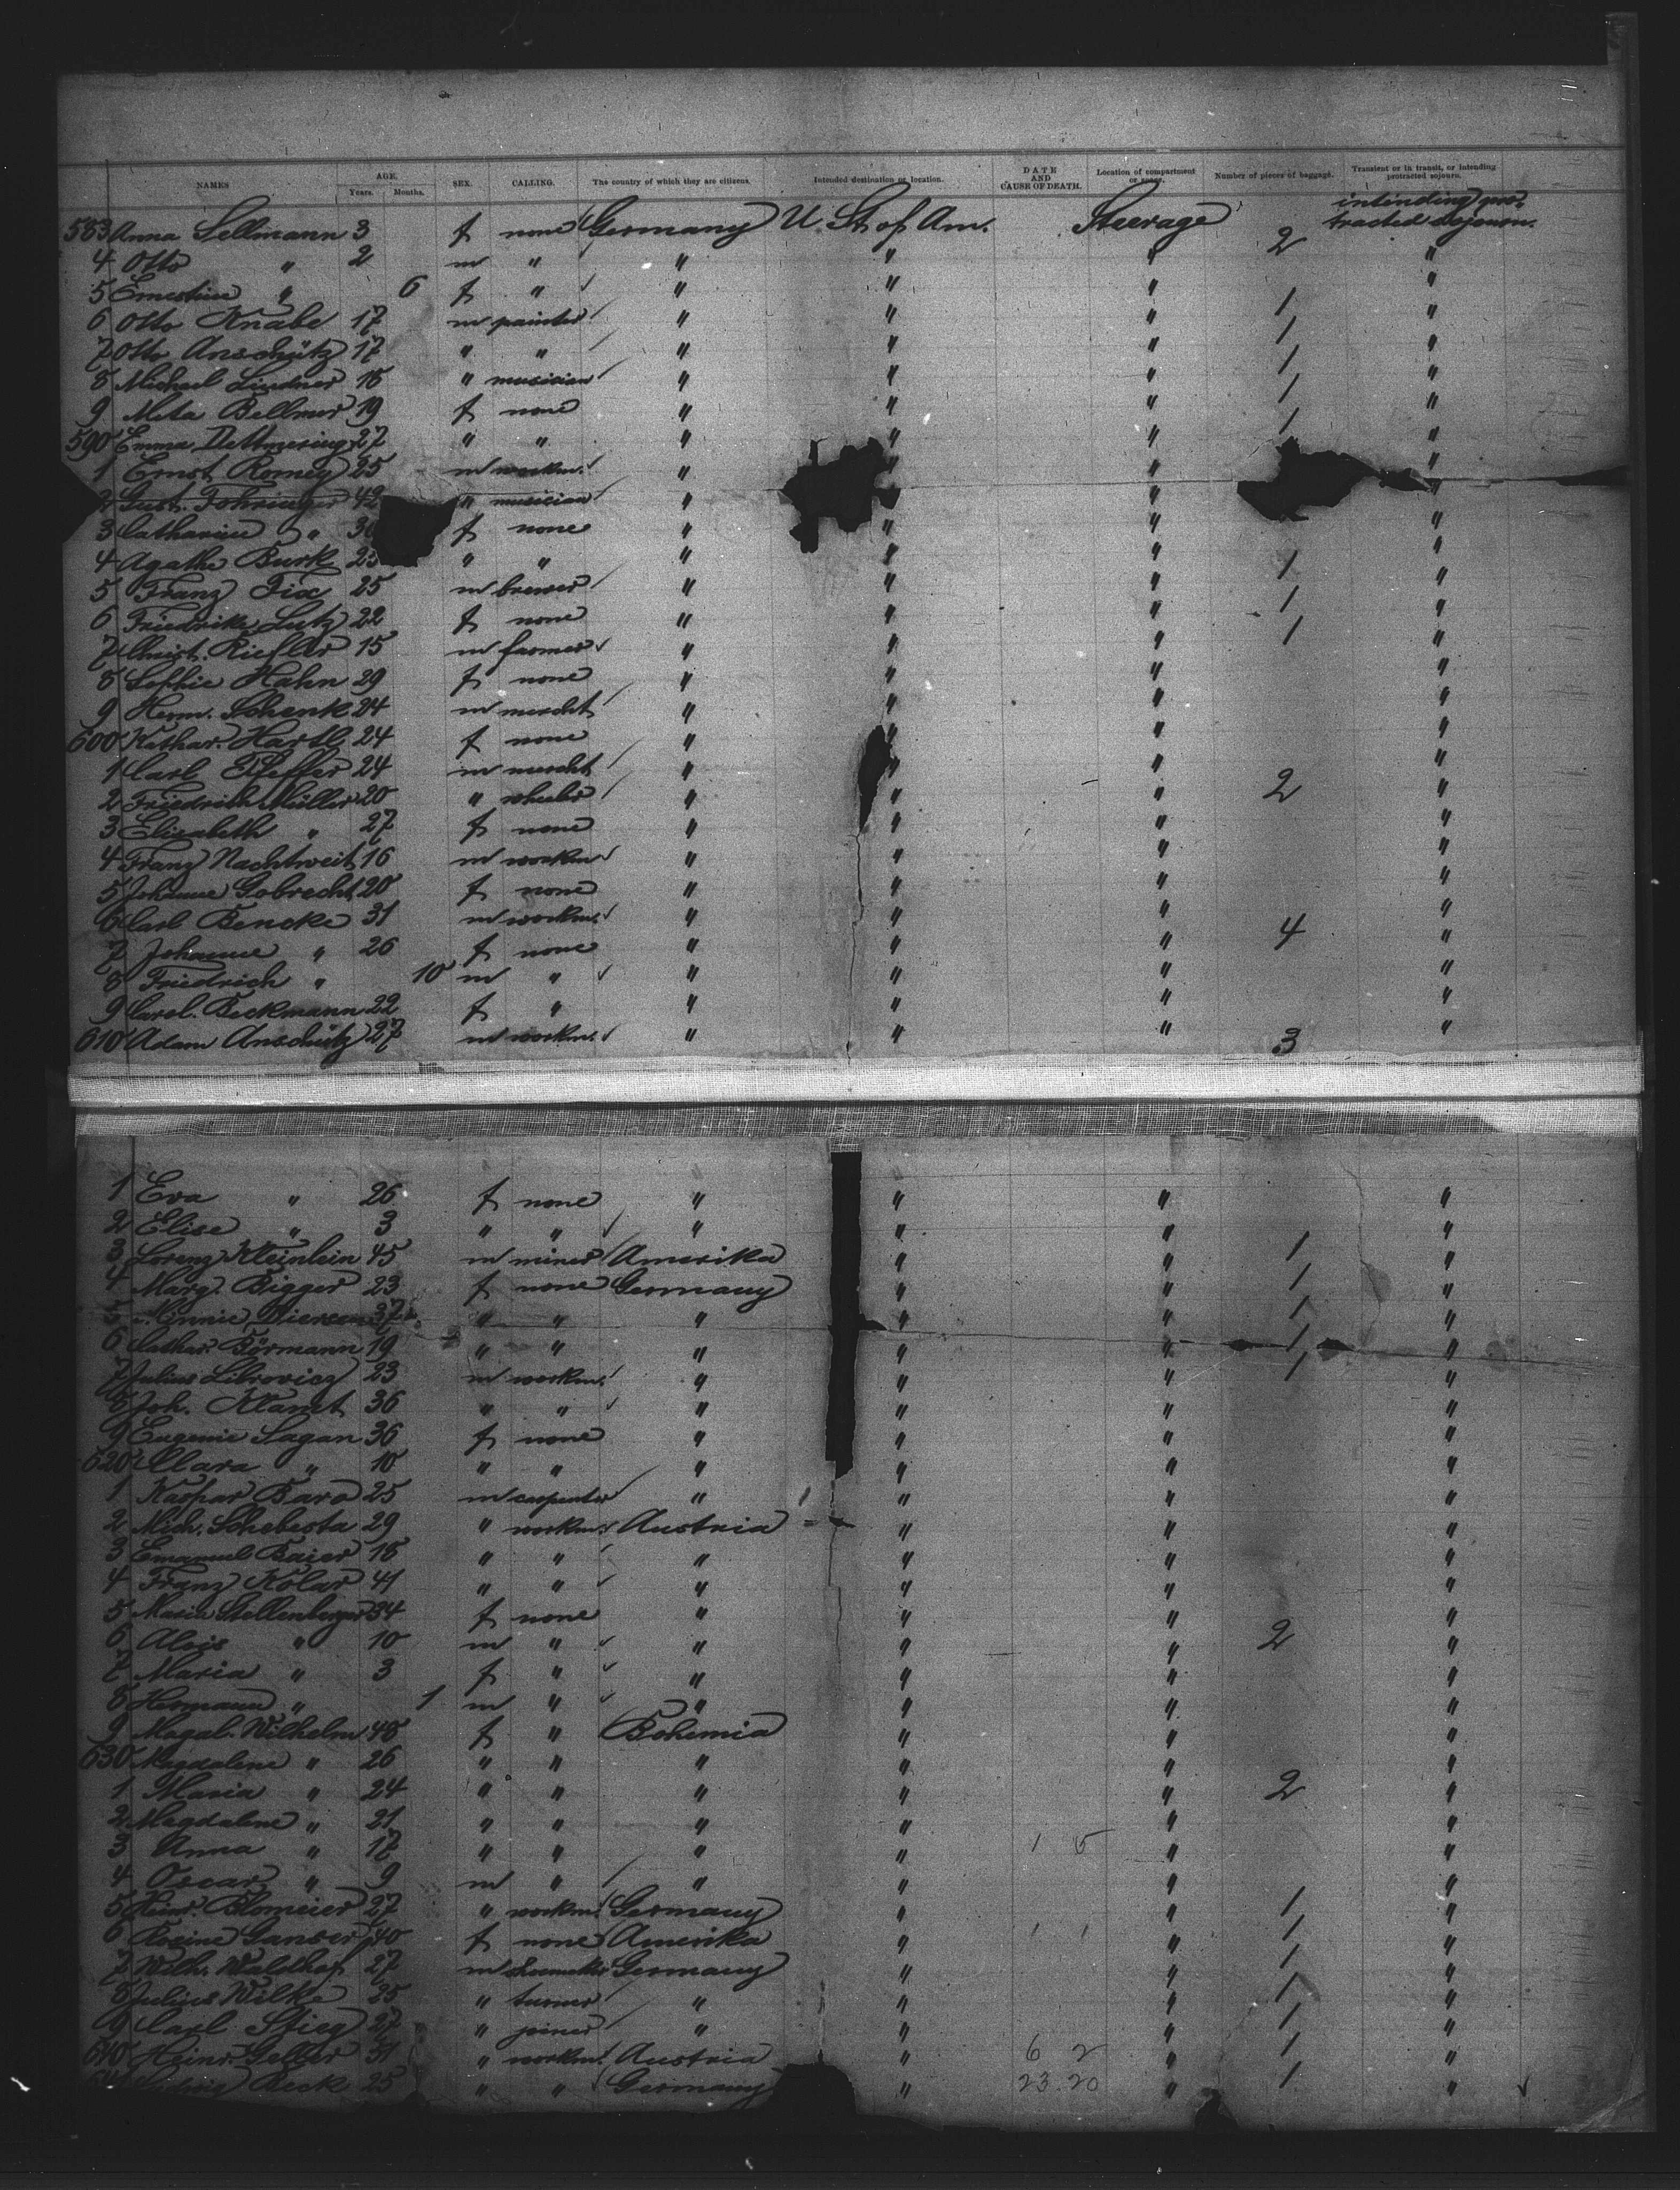 NAMES AGE. Years. Months. SEX. CALLING. The country of which they are citizens. Intended destination or location. DATE AND CAUSE OF DEATH. Location of compartment or space. Number of pieces of baggage. Transient or in transit, or intending protracted sojourn.
583 Anna Sellmann 3 f none Germany U. St. of Am. Steerage 2 intending pro-tracted sojourn.
4 Otto " 2 m " " " " "
5 Ernestine " 6 f " " " " "
6 Otto Knabe 17 m painter " " " 1 "
7 Otto Anschütz 17 " " " " " 1 "
8 Michael Lindner 18 " musician " " " 1 "
9 Meta Bellmer 19 f none " " " 1 "
590 Emma 27 " " " " " 1 "
1 Ernst Romey 25 m workm. " " " "
2 Gust. 42 " musician " " " "
3 Catharine " f none " " " "
4 Agathe Burk 23 " " " " " 1 "
5 Franz Fix 25 m brewer " " " 1 "
6 Friedrike Lutz 22 f none " " " 1 "
7 Christ. Riefler 15 m farmer " " " "
8 Sophie Hahn 29 f none " " " "
9 Herm. Schenk 24 m mercht " " " "
600 Kathar. Hartl 24 f none " " " "
1 Carl Pfeffer 24 m mercht " " " "
2 Friedrich Müller 20 " " " " 2 "
3 Elisabeth " 27 f none " " " "
4 Franz Nachtweit 16 m workm " " " "
5 Johanne Gobrecht 20 f none " " " "
6 Carl Bencke 31 m workm. " " " 4 "
7 Johanne " 26 f none " " " "
8 Friedrich " 10 m " " " " "
9 Carol. Beckmann 22 f " " " " "
610 Adam Anschütz 27 m workm. " " " 3 "
1 Eva " 26 f none " " " "
2 Elise " 3 " " " " " "
3 Lorenz Kleinlein 45 m miner Amerika " " 1 "
4 Marg. Bigger 23 f none Germany " " 1 "
5 37 " " " " " 1 "
6 Cathar. Börmann 19 " " " " " 1 "
7 Julius Librovicz 23 m workm. " " " 1 "
8 Joh. Klamt 36 " " " " " "
9 Eugenie Sagan 36 f none " " " "
620 Clara " 10 " " " " " "
1 Kaspar Baro 25 m carpenter " " " "
2 Mich. Schebesta 29 " workm. Austria " " "
3 Emanuel Baier 18 " " " " " "
4 Franz Kolar 41 " " " " " "
5 Maria Stellenberger 34 f none " " " 2 "
6 Alois " 10 m " " " " "
7 Maria " 3 f " " " " "
8 Hermann " 1 m " " " " "
9 Magdal. Wilhelm 48 f " Bohemia " " "
630 Magdalene " 26 " " " " " "
1 Maria " 24 " " " " " 2 "
2 Magdalene " 21 " " " " " "
3 Anna " 17 " " " " 1 5 " "
4 Oscar " 9 m " " " " "
5 Heinr. Blomeier 27 " workm. Germany " " 1 "
6 Rosine Ganser 40 f none Amerika " 1 1 " 1 "
7 Wilh. Waldhof 27 m shoemaker Germany " " 1 "
8 Julius Wilke 25 " turner " " " 1 "
9 Carl Stieg 27 " joiner " " " 1 "
640 Heinr. Geller 31 " workm. Austria " 6 2 " 1 "
641 Ludwig Beck 25 " " Germany " 23.20 " 1 "